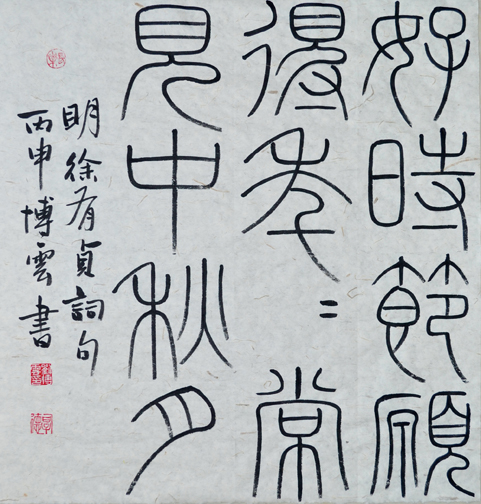 好時節願
得年〻常
見中秋月
明徐有貞詞句
丙申博雲書